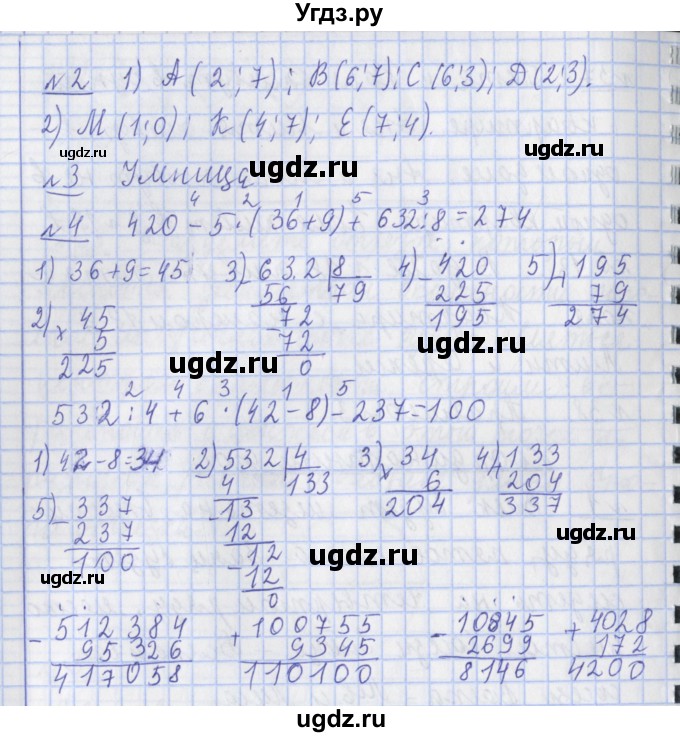 Угдз.ру
№2 1) A(2;7); B(6;7); C(6;3); D(2;3).
2) M(1;0); K(4;7); E(7;4).
ugdz.ru ugdz.ru ugdz.ru
№3 Умница
4 2 1 5 3
№4 420 - 5 · (36+9) + 632:8 = 274
1) 36+9=45 3) - 632 | 8 4) - 420 5) + 195
56 79 225 79
195 274
2) × 45 - 72
5 72
225 0
ugdz.ru ugdz.ru
2 4 3 1 5
532 : 4 + 6 · (42 - 8) - 237 = 100
1) 42-8=34 2) 532 | 4 3) × 34 4) + 133
4 133 6 204
204 337
5) - 337 - 13
237 12
100 - 12
12
0
ugdz.ru ugdz.ru ugdz.ru
- 512384 + 100755 - 10845 + 4028
95326 9345 2699 172
417058 110100 8146 4200
ugdz.ru ugdz.ru
ugdz.ru